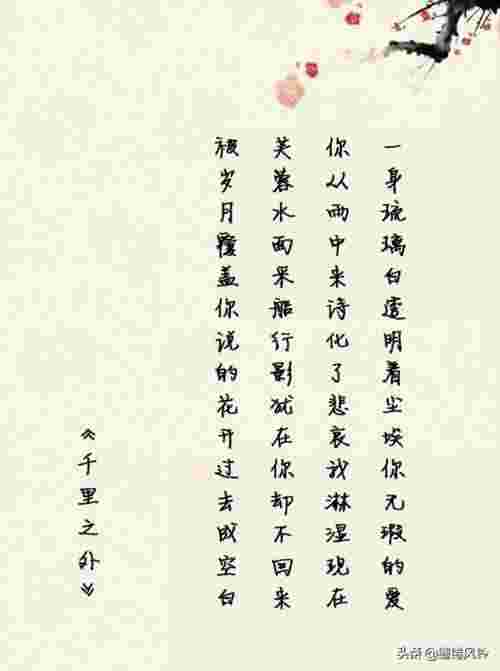 一身琉璃白透明着尘埃你无瑕的爱
你从雨中来诗化了悲哀我淋湿现在
芙蓉水面采船行影犹在你却不回来
被岁月覆盖你说的花开过去成空白
《千里之外》
头条